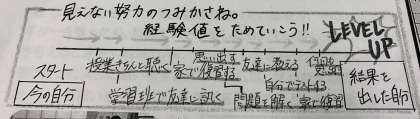 見えない努力のつみかさね。
経験値をためていこう!!
LEVEL UP
スタート
今の自分
授業きちんと聴く
家で復習する
思い出す
友達に教える
学習班で友達に訊く
問題を解く
自分でテストする
家で復習
結果を
出した自分